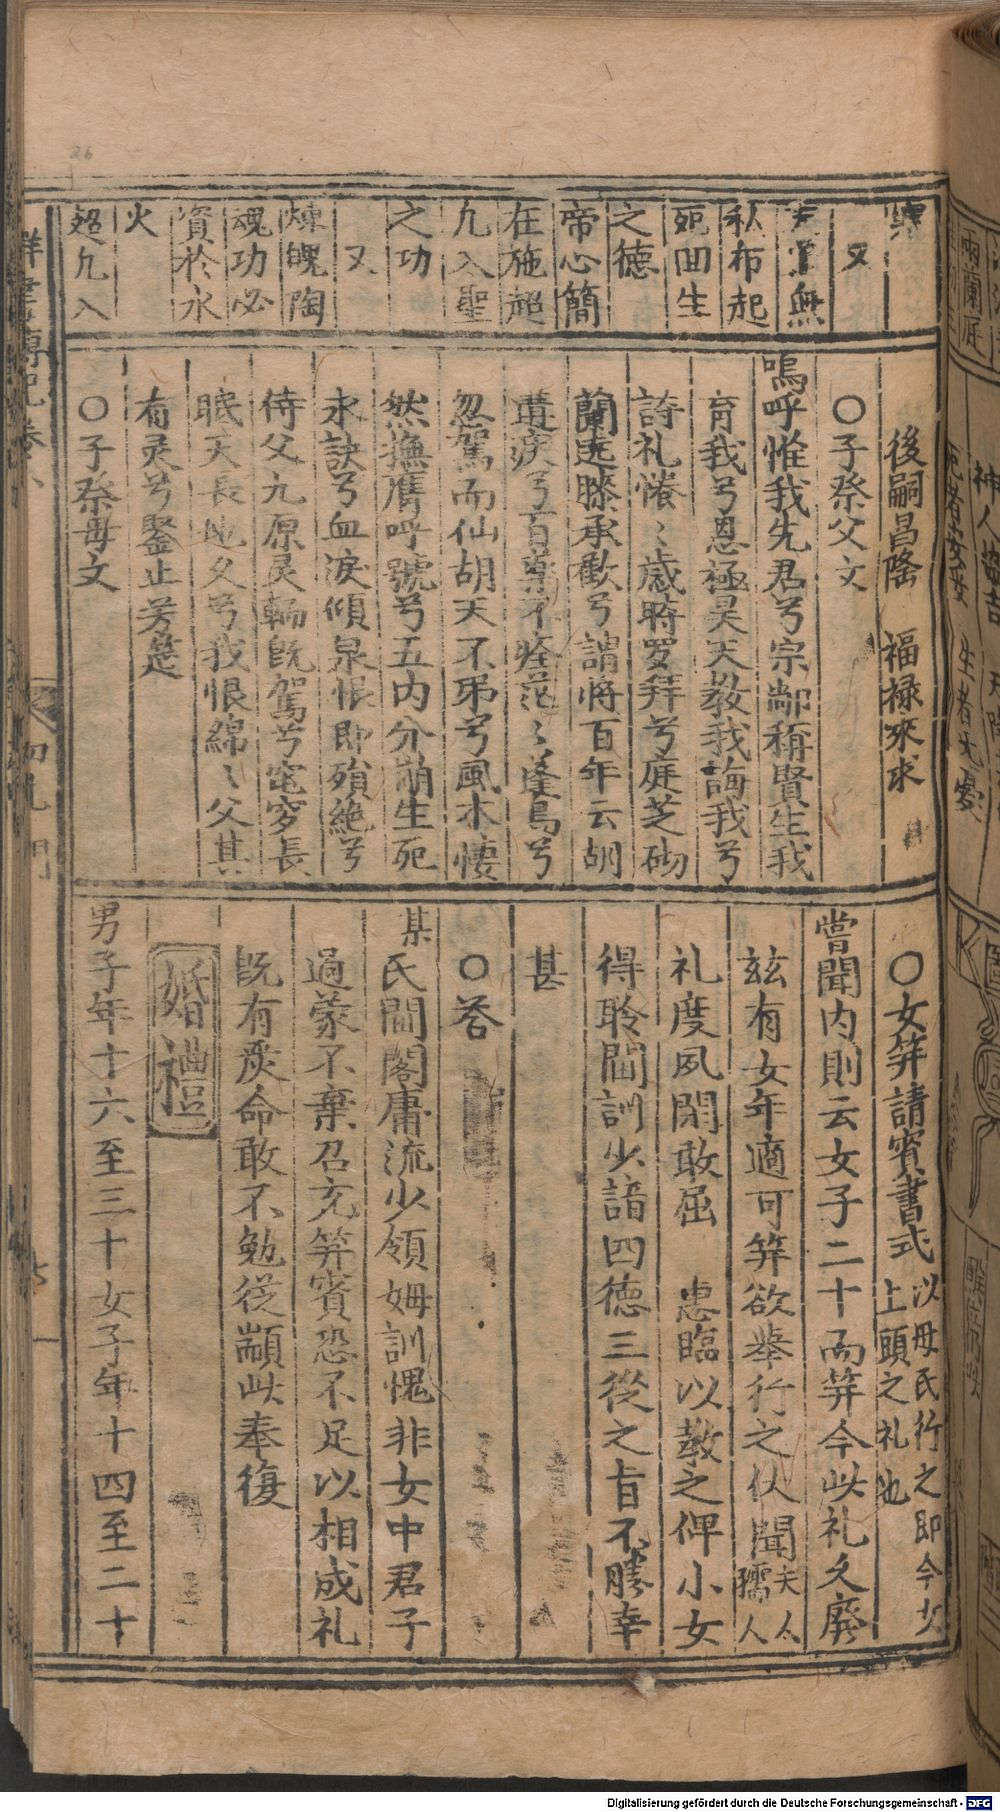 又
私布起
死回生
之德
帝心簡
在施超
九入聖
之功
又
煉魄陶
魂功必
資於水
火
超九入
後嗣昌隆　福禄來求
○子祭父文
嗚呼惟我先君兮宗鄰稱賢生我
育我兮恩極昊天教我誨我兮
詩礼惓〻歲時罗拜兮庭芝砌
蘭遶膝承歡兮謂將百年云胡
遘疾兮百藥不痊茫〻蓬島兮
忽駕而仙胡天不弔兮風木悽
然撫膺呼號兮五内分崩生死
永訣兮血淚傾泉恨即殞絶兮
侍父九原灵輀既駕兮窀穸長
眠天長地久兮我恨綿〻父其
有灵兮鑒止芳筵
○子祭母文
○女笄請賓書式　以母氏行之即今女
上頭之礼也
嘗聞内則云女子二十而笄今此礼久廢
玆有女年適可笄欲舉行之伏聞夫人
孺人
礼度夙閑敢屈　惠臨以教之俾小女
得聆閫訓少諳四德三從之旨不勝幸
甚
○答
某氏閫閣庸流少領姆訓愧非女中君子
過蒙不棄召充笄賓恐不足以相成礼
既有嚴命敢不勉從顓此奉復
婚禮
男子年十六至三十女子年十四至二十
Digitalisierung gefördert durch die Deutsche Forschungsgemeinschaft - DFG